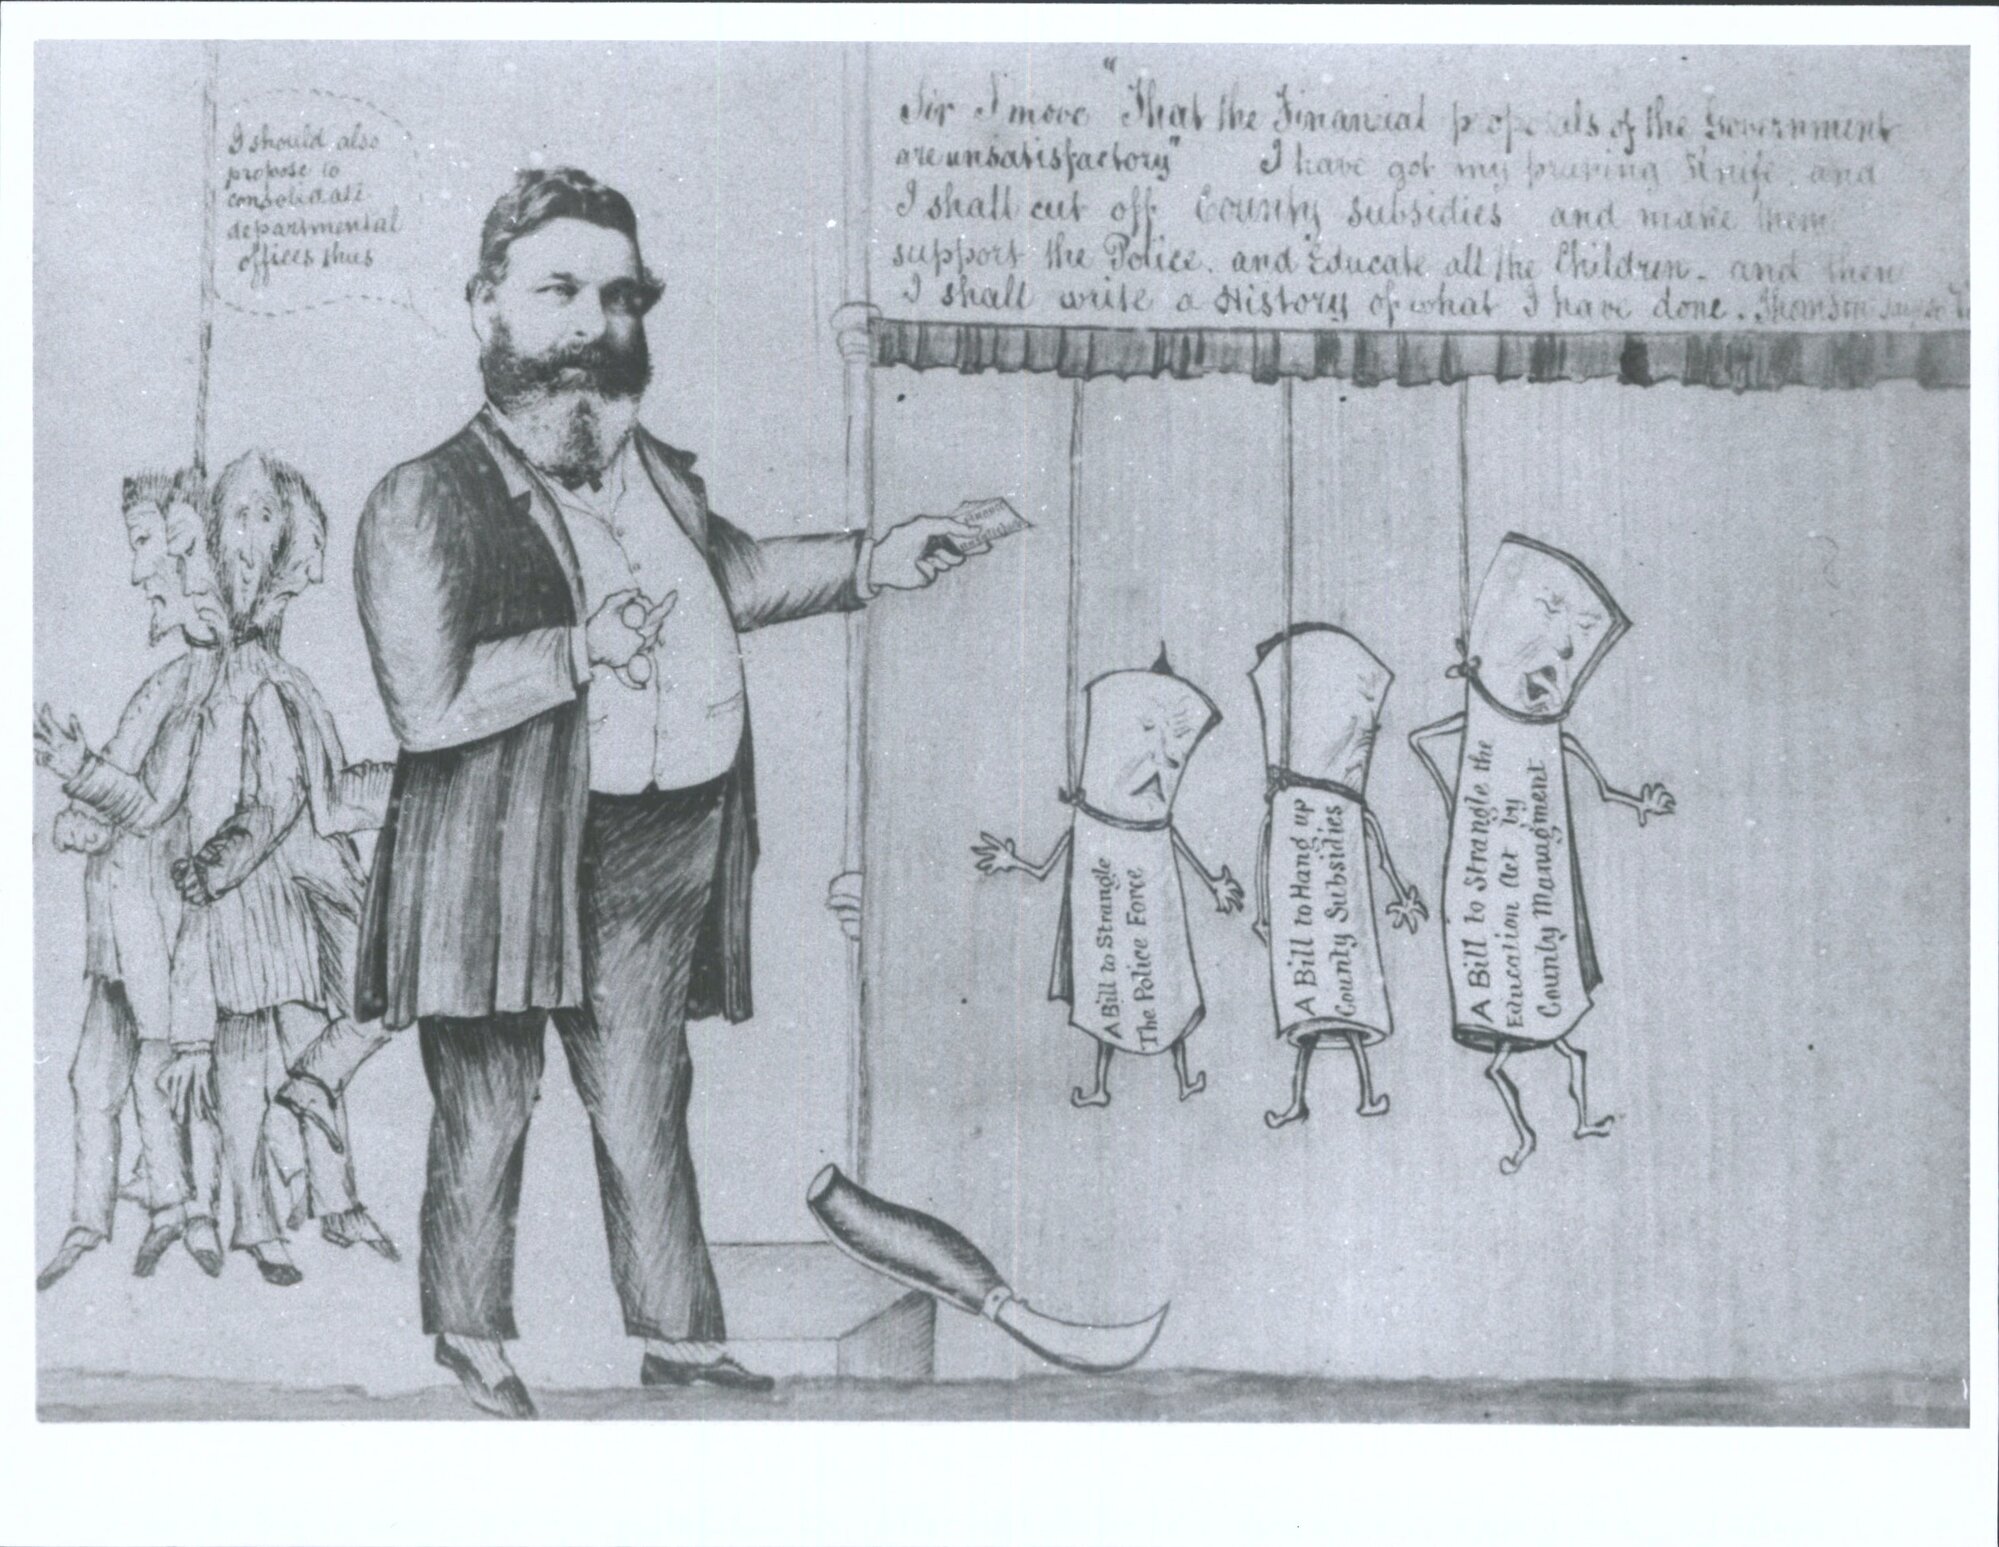 I should also
propose to
consolidate
departmental
offices thus
Sir I move "That the Financial proposals of the Government
are unsatisfactory" I have got my pruning Knife, and
I shall cut off County Subsidies and make them
support the Police, and Educate all the Children - and then
I shall write a History of what I have done. Thomson
A Bill to Strangle
The Police Force
A Bill to Hang up
County Subsidies
A Bill to Strangle the
Education Act by
County Managment